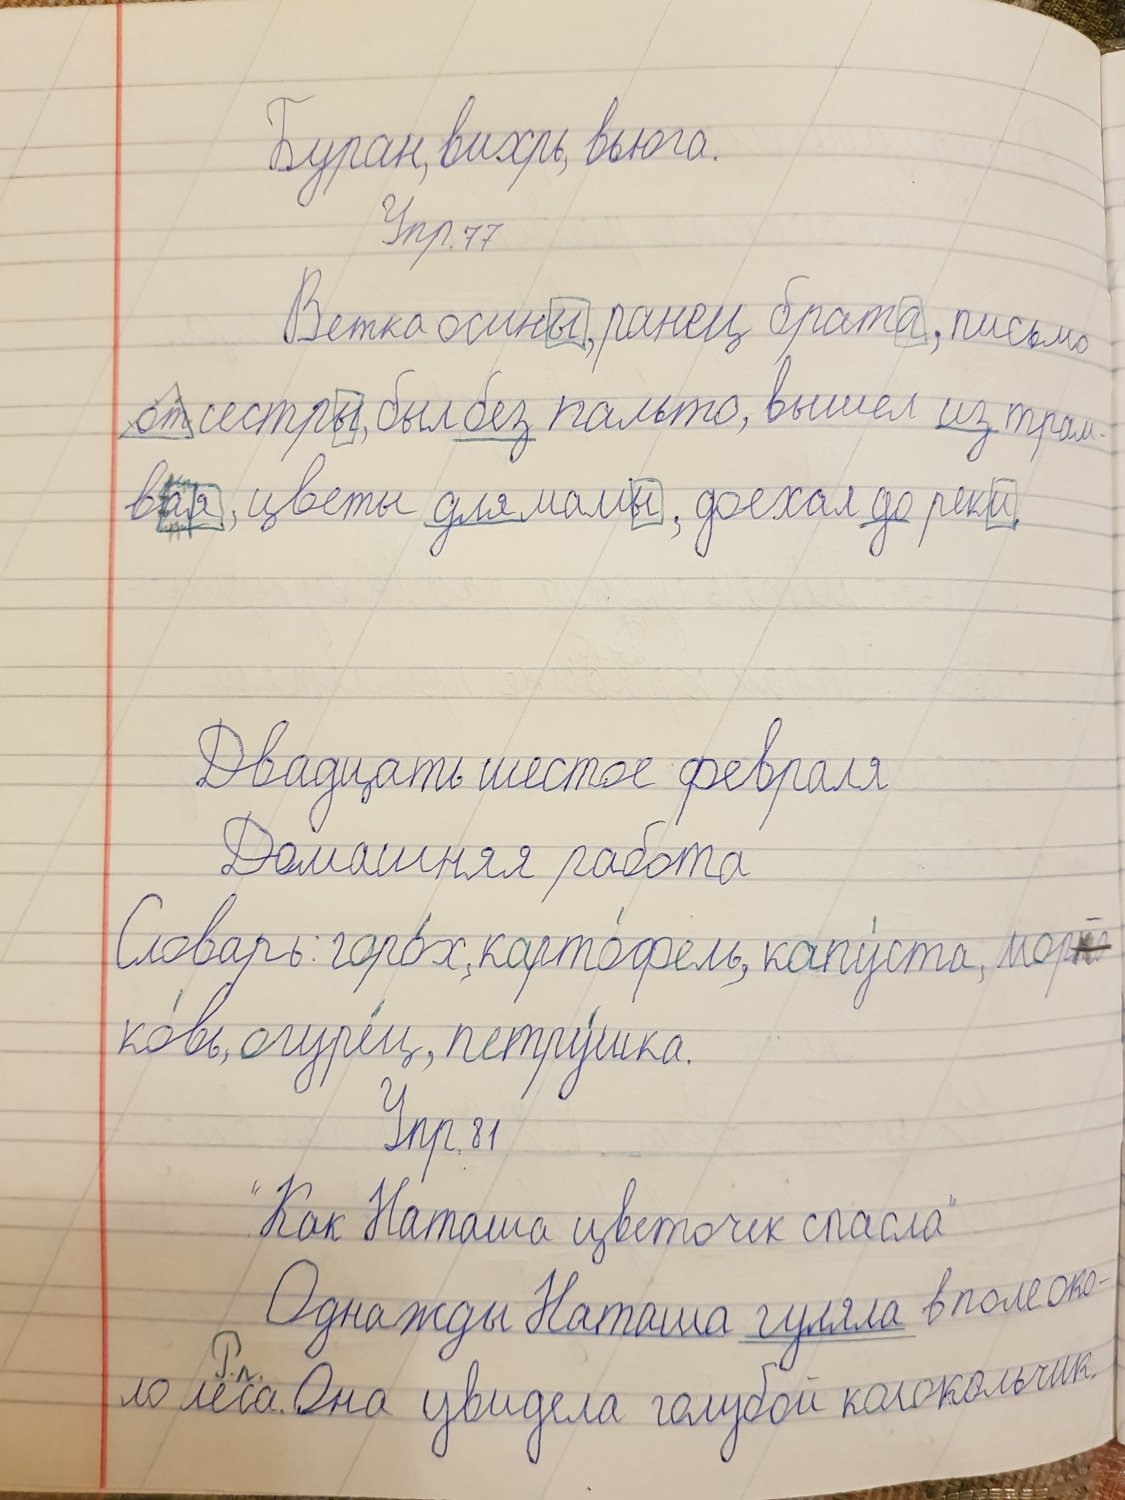 Буран, вихрь, вьюга.
Упр. 77
Ветка осины, ранец брата, письмо
от сестры, был без пальто, вышел из трам-
вая, цветы для мамы, доехал до реки.
Двадцать шестое февраля
Домашняя работа
Словарь: горо́х, карто́фель, капу́ста, мор
ко́вь, огуре́ц, петру́шка.
Упр. 81
"Как Наташа цветочек спасла"
Однажды Наташа гуляла в поле око-
Р.п.
ло леса. Она увидела голубой колокольчик.